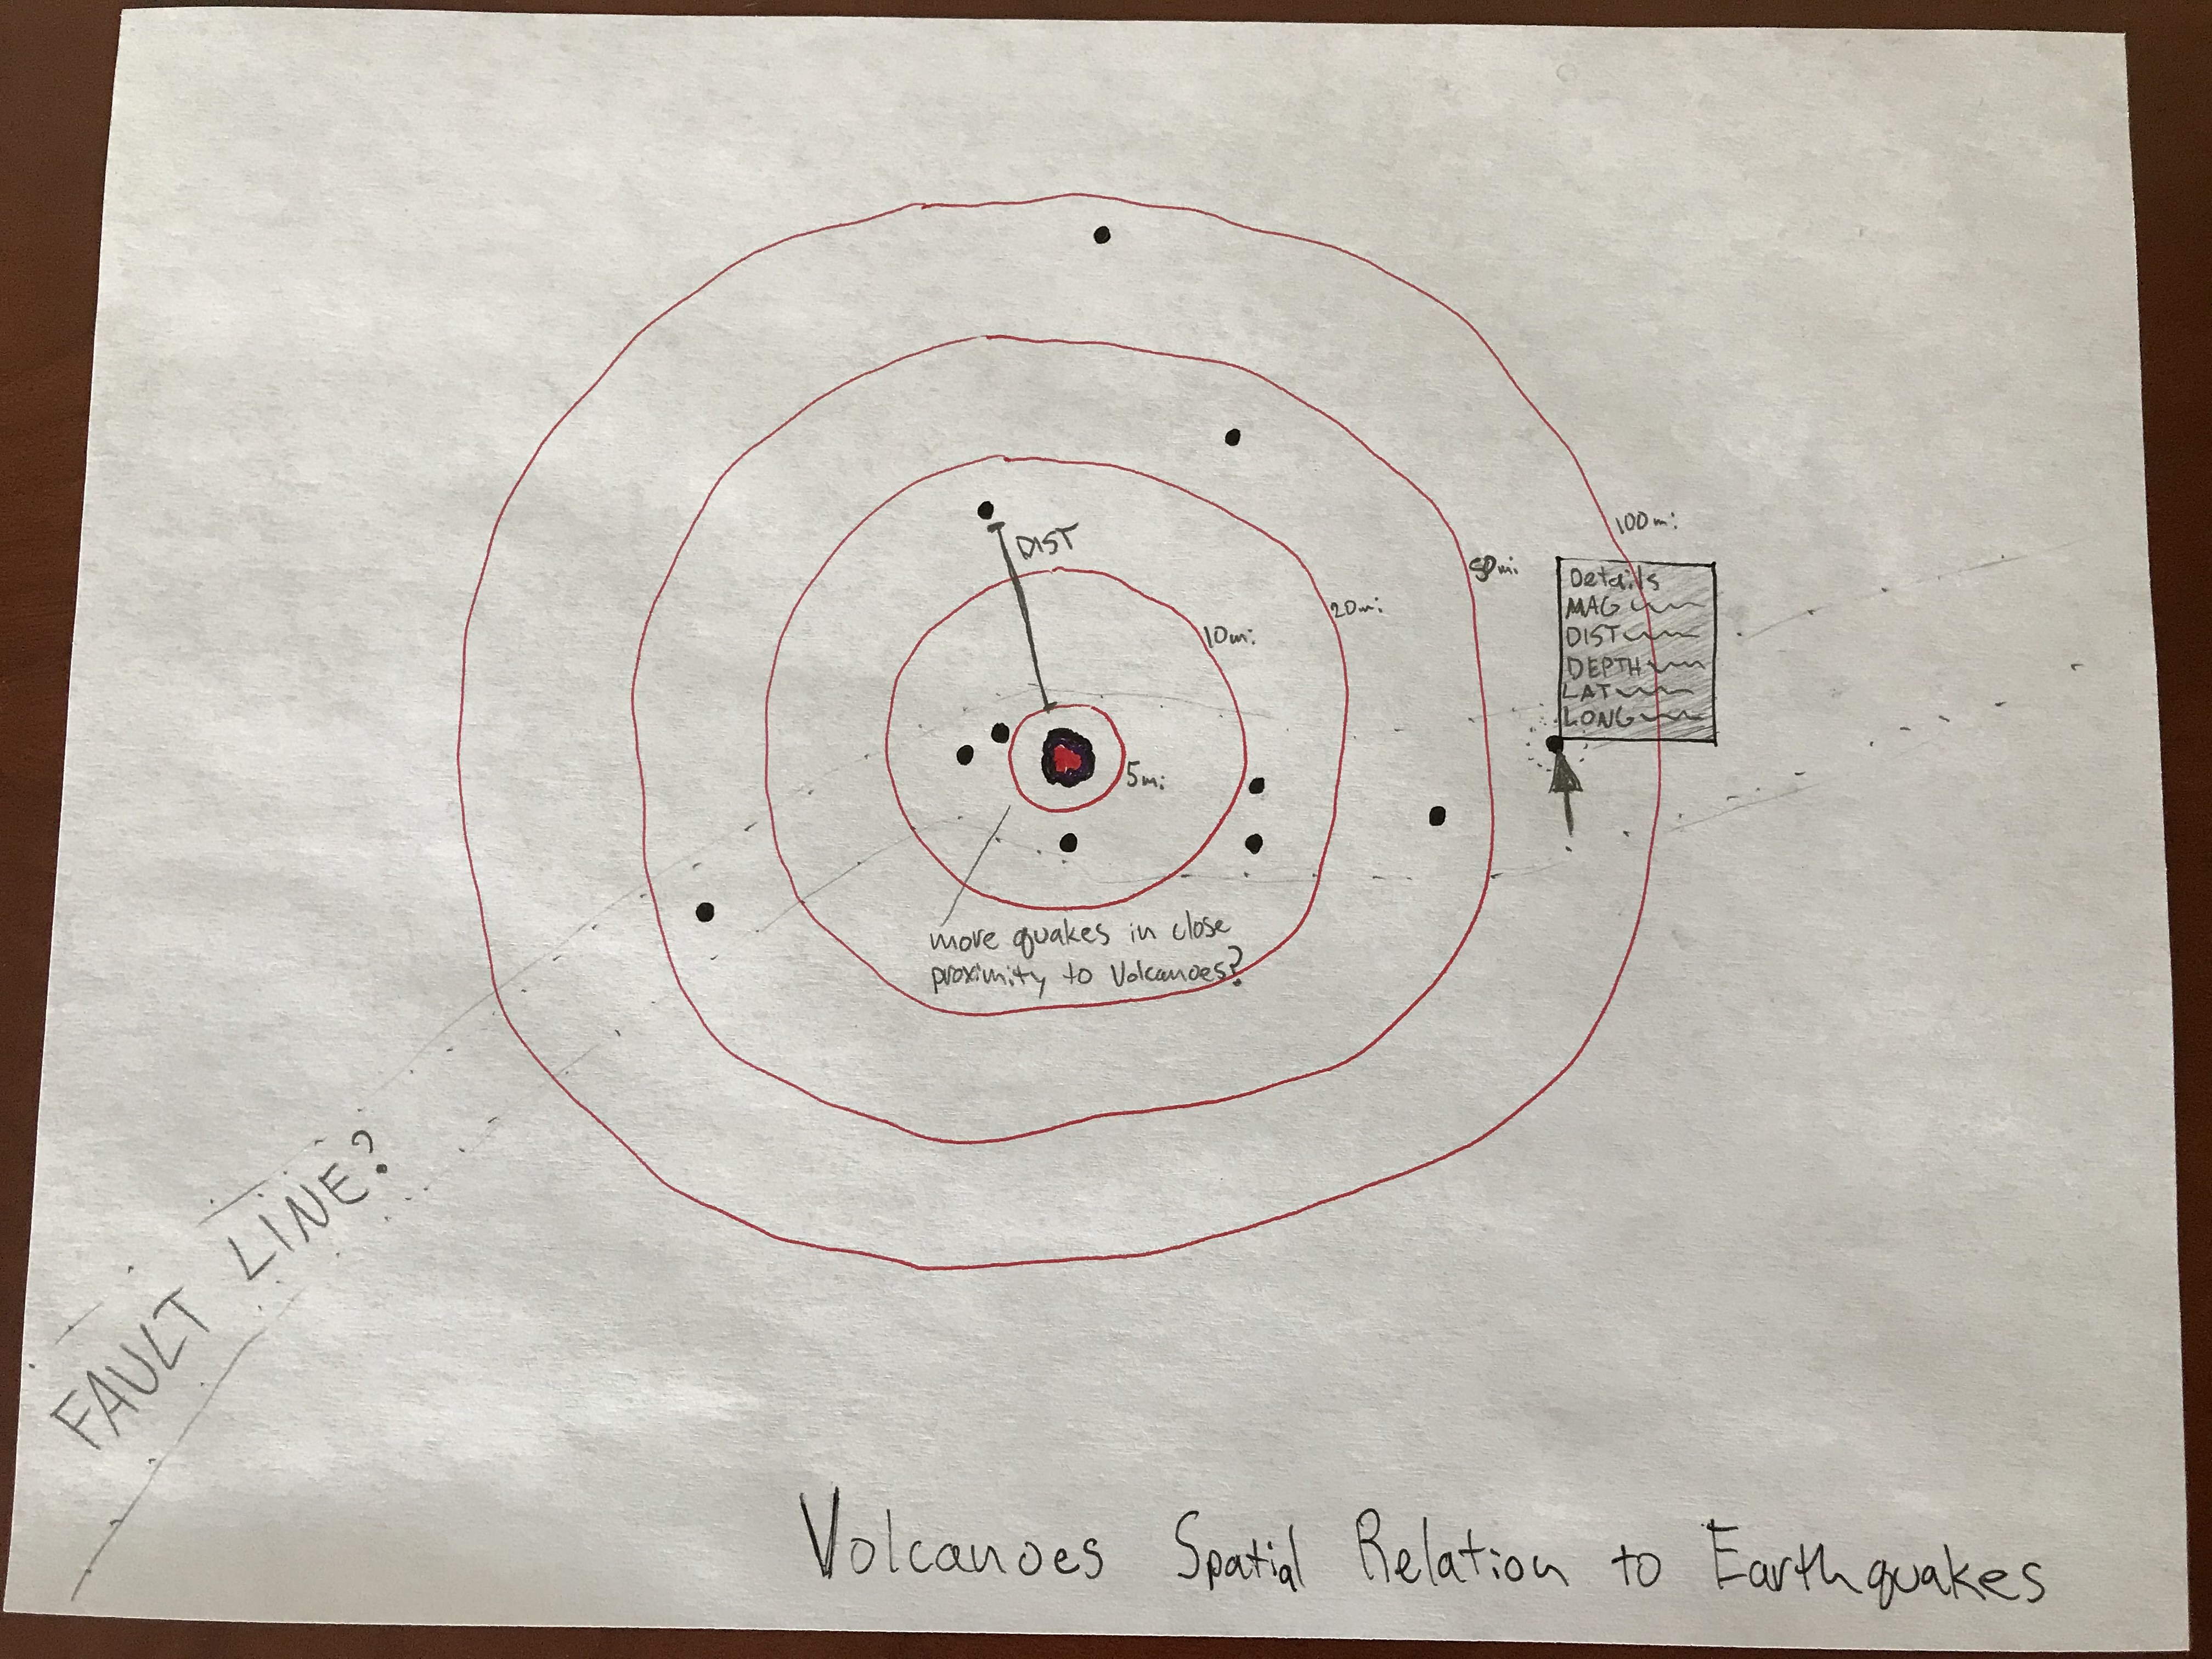 100mi
50mi
DIST
Details
MAG
DIST
DEPTH
LAT
LONG
20mi
10mi
5mi
more quakes in close
proximity to Volcanoes?
FAULT LINE?
Volcanoes Spatial Relation to Earthquakes